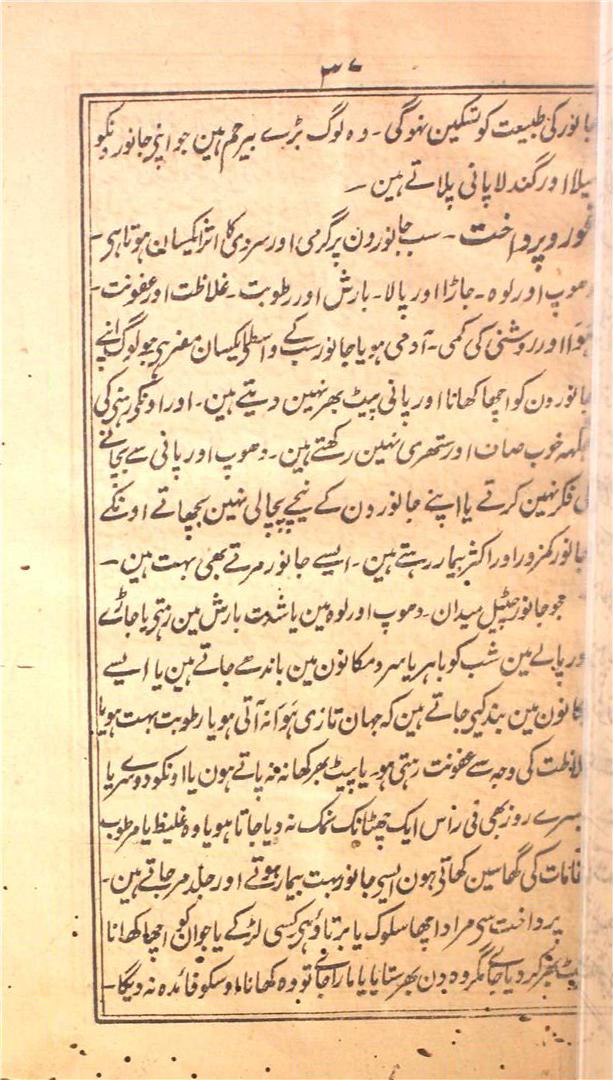 ۳۷
جانور کی طبیعت کو تسکین نہوگی۔ وہ لوگ بڑے بیرحم ہین جو اپنی جانورونکو
میلا اور گندلا پانی پلاتے ہین۔
غور و پرداخت۔ سب جانورون پر گرمی اور سردی کا اثر ایکسان ہوتا ہی۔
دھوپ اور لوہ۔ جاڑا اور پالا۔ بارش اور رطوبت۔ غلاظت اور عفونت۔
ہَوَا اور روشنی کی کمی۔ آدمی ہو یا جانور سب کے واسطی ایکسان مضر ہی جو لوگ اپنے
جانورون کو اچھا کھانا اور پانی پیٹ بھر نہین دیتے ہین۔ اور اونکی رہنی کی
جگہہ خوب صاف اور ستھری نہین رکھتے ہین۔ دھوپ اور پانی سے بچانے
کی فکر نہین کرتے یا اپنے جانورون کے نیچے بچالی نہین بچھاتے اونکے
جانور کمزور اور اکثر بیمار رہتے ہین۔ ایسے جانور مرتے بھی بہت ہین۔
جو جانور چٹیل میدان۔ دھوپ اور لوہ مین یا شدت بارش مین رہتی یا جاڑے
اور پالے مین شب کو باہر یا سرد مکانون مین باندھے جاتے ہین یا ایسے
مکانون مین بند کیی جاتے ہین کہ جہان تازی ہَوَا نہ آتی ہو یا رطوبت بہت ہو یا
غلاظت کی وجہ سے عفونت رہتی ہو۔ یا پیٹ بھر کھانہ نہ پاتے ہون یا اونکو دوسرے یا
تیسرے روز بھی فی راس ایک چھٹانک نمک نہ دیا جاتا ہو یا وہ غلیظ یا مرطوب
مقامات کی گھاسین کھاتی ہون ایسی جانور بہت بیمار ہوتے اور جلد مر جاتے ہین۔
پرداخت سی مراد اچھا سلوک یا برتاؤ ہی کسی لڑکے یا جوان کو اچھا کھانا
پیٹ بھر کر دیا جائے مگر وہ دن بھر ستایا یا مارا جائے تو وہ کھانا اوسکو فائدہ نہ دیگا۔